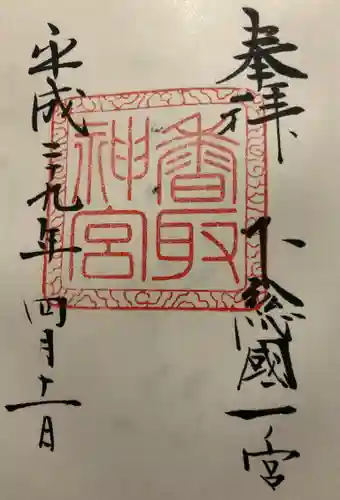 奉拝
下総國一宮
香取
神宮
平成二十九年四月十一日